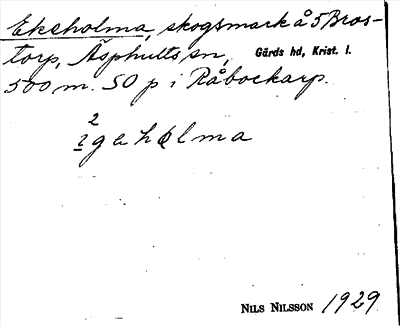 Ekeholma, skogsmark å 5 Bros-
torp, Åsphults sn, Gärds hd, Krist. l.
500 m. SO p i Råbockarp.
2
ega hɷlma
NILS NILSSON 1929